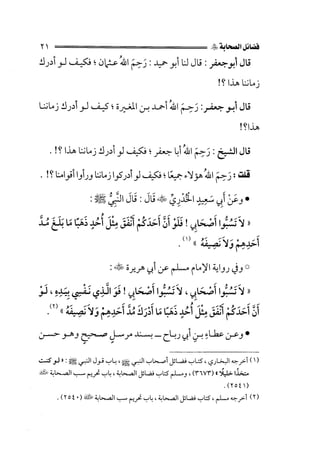 فضائل الصحابة ﷺ ٢١
قال أبو جعفر : قال لنا أبو حميد : رَحِمَ اللهُ عثمان ؛ فكيف لو أدرك
زماننا هذا ؟!
قال أبو جعفر : رَحِمَ اللهُ أحمد بن المغيرة ؛ كيف لو أدرك زماننا
هذا؟!
قال الشيخ : رَحِمَ اللهُ أبا جعفر ؛ فكيف لو أدرك زماننا هذا ؟! .
قلت : رَحِمَ اللهُ هؤلاء جميعًا ؛ فكيف لو أدركوا زماننا ورأوا أقوامنا ؟! .
• وعَنْ أَبي سَعِيدٍ الْخُدْرِيِّ ﷺ قَالَ : قَالَ النَّبِيُّ ﷺ :
« لَا تَسُبُّوا أَصْحَابِي ! فَلَوْ أَنَّ أَحَدَكُمْ أَنْفَقَ مِثْلَ أُحُدٍ ذَهَبًا مَا بَلَغَ مُدَّ
أَحَدِهِمْ وَلَا نَصِيفَهُ » (١) .
○ وفي رواية الإمام مسلم عن أبي هريرة ﷺ :
« لَا تَسُبُّوا أَصْحَابِي ، لَا تَسُبُّوا أَصْحَابِي ! فَوَ الَّذِي نَفْسِي بِيَدِهِ ، لَوْ
أَنَّ أَحَدَكُمْ أَنْفَقَ مِثْلَ أُحُدٍ ذَهَبًا مَا أَدْرَكَ مُدَّ أَحَدِهِمْ وَلَا نَصِيفَهُ » (٢) .
• وعن عطاء بن أبي رباح ــ بسند مرسل صحيح وهو حسن
(١) أخرجه البخاري ، كتاب فضائل أصحاب النبي ﷺ ، باب قول النبي ﷺ : « لو كنت
متخذًا خليلًا » (٣٦٧٣) ، ومسلم كتاب فضائل الصحابة ، باب تحريم سب الصحابة
(٢٥٤١) .
(٢) أخرجه مسلم ، كتاب فضائل الصحابة ، باب تحريم سب الصحابة (٢٥٤٠) .